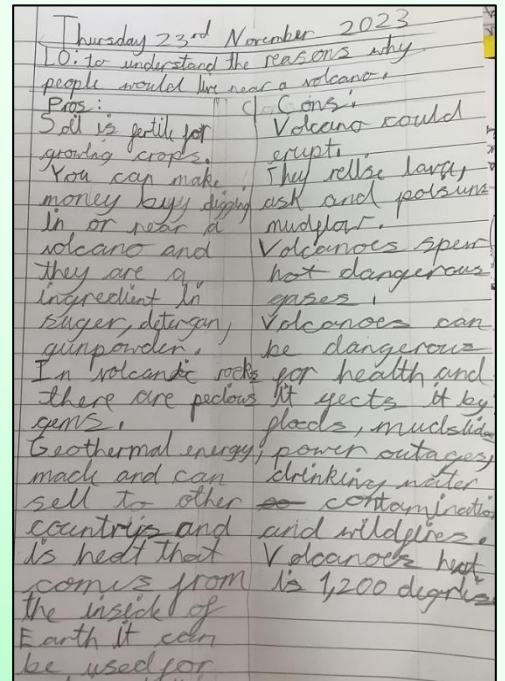 Thursday 23rd November 2023
LO: to understand the reasons why
people would live near a volcano.
Pros:
Soil is fertile for
growing crops.
You can make
money byy digging
in or near a
volcano and
they are a
ingredient in
suger, detergan,
gunpowder.
In volcanic rocks
there are pecious
gems.
Geothermal energy,
mack and can
sell to other
countrys and
is heat that
comes from
the inside of
Earth it can
be used for
Cons:
Volcano could
erupt.
They rellse lava,
ask and poisuns
mudflow.
Volcanoes spew
hot dangerous
gases.
Volcanoes can
be dangerous
for health and
it ejects it by
floods, mudslide
power outages,
drinking water
contaminatio
and wildfires.
Volcanoes heat
is 1,200 degris